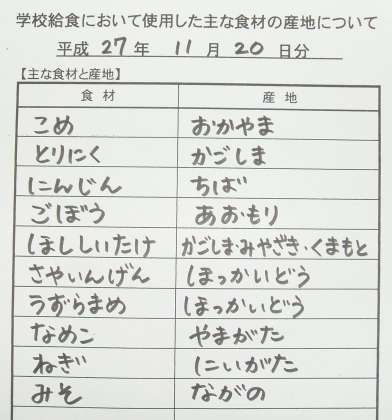 学校給食において使用した主な食材の産地について
平成 27 年 11 月 20 日分
【主な食材と産地】
食材 産地
こめ おかやま
とりにく かごしま
にんじん ちば
ごぼう あおもり
ほししいたけ かごしま・みやざき・くまもと
さやいんげん ほっかいどう
うずらまめ ほっかいどう
なめこ やまがた
ねぎ にいがた
みそ ながの